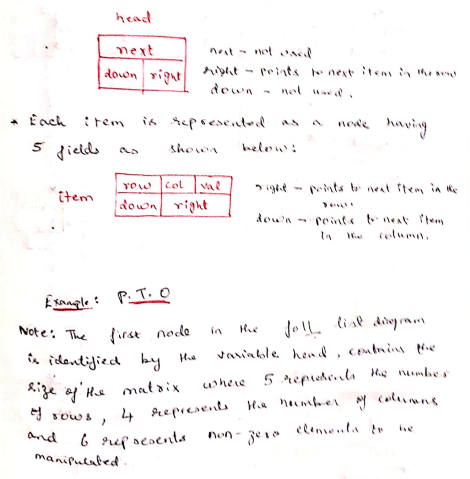 head
next
down right
next - not used
right - points to next item in the row
down - not used.
* Each item is represented as a node having
5 fields as shown below:
item
row col val
down right
right - points to next item in the
row.
down - points to next item
in the column.
Example: P.T.O
Note: The first node in the foll list diagram
is identified by the variable head, contains the
size of the matrix where 5 represents the number
of rows, 4 represents the number of columns
and 6 represents non-zero elements to be
manipulated.